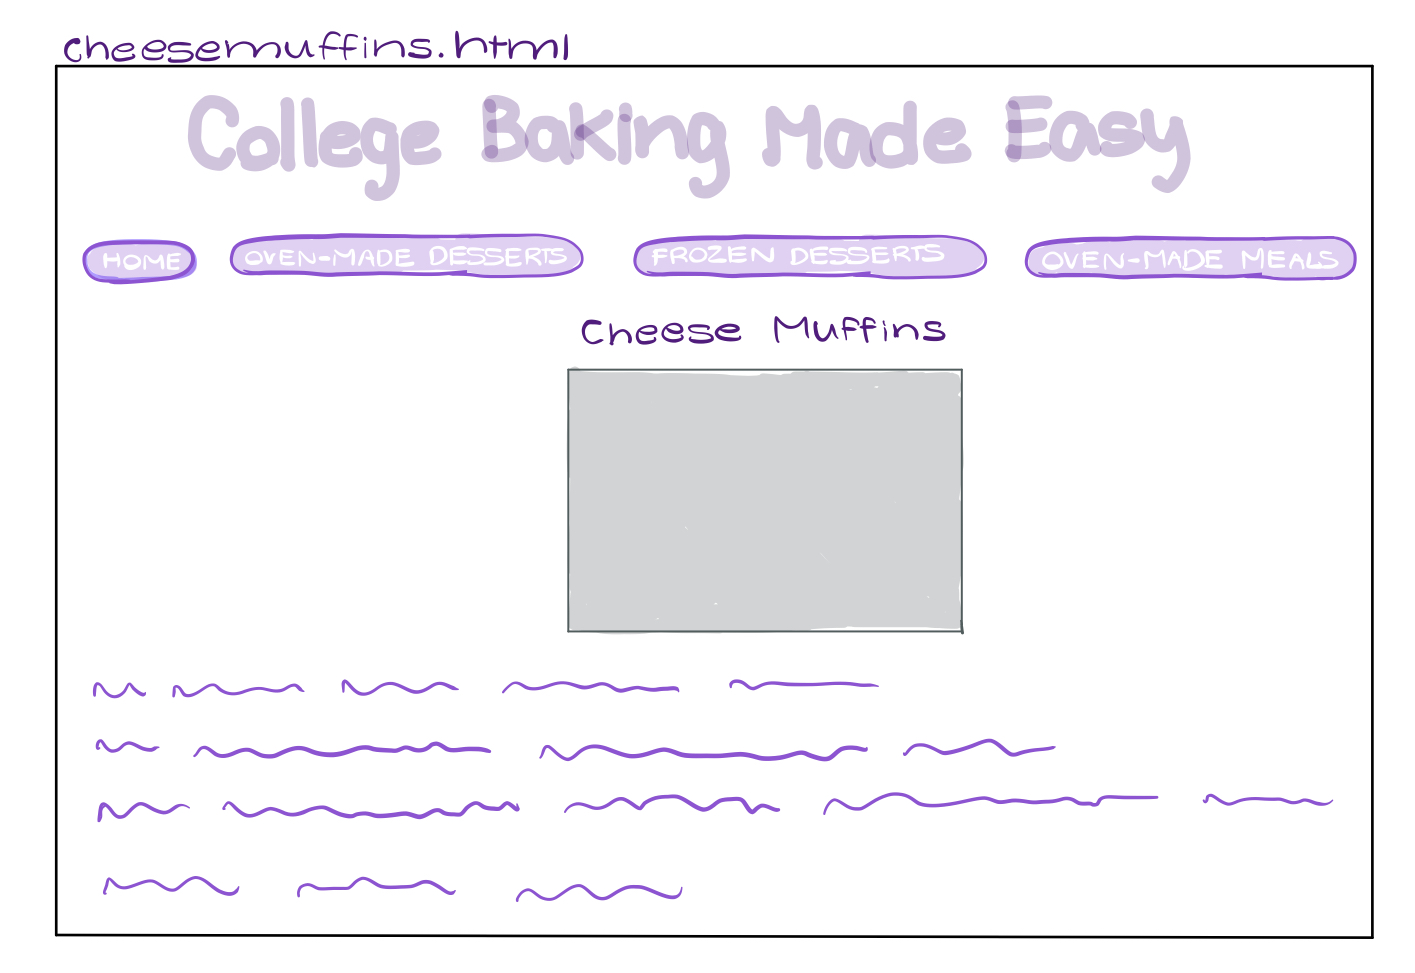 cheesemuffins.html
College Baking Made Easy
HOME OVEN-MADE DESSERTS FROZEN DESSERTS OVEN-MADE MEALS
Cheese Muffins